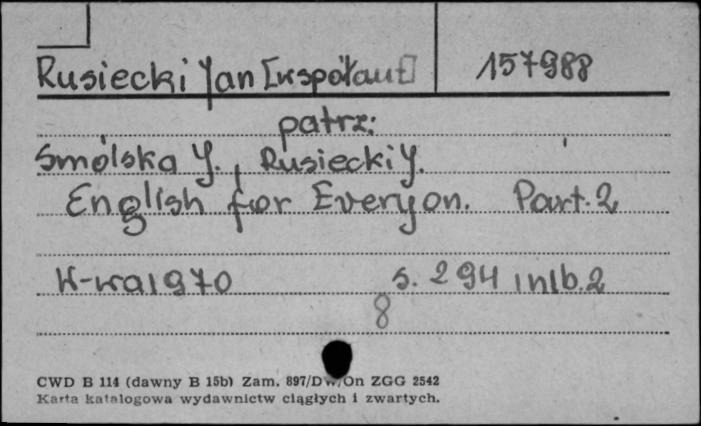 Rusiecki Jan [współaut] 157988
patrz:
Smólska J., Rusiecki J.
English for Everyon. Part. 2
W-wa 1970 s. 294 inlb. 2
8
CWD B 114 (dawny B 15b) Zam. 897/DW/On ZGG 2542
Karta katalogowa wydawnictw ciągłych i zwartych.